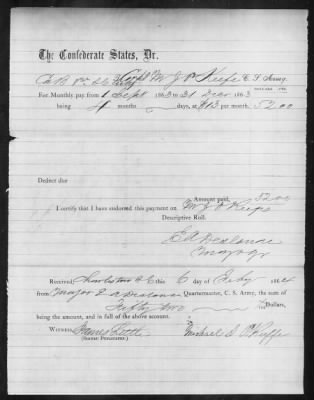 The Confederate States, Dr.
Corpl M J O'Keefe C. S. Army.
DOLLARS CTS.
For Monthly pay from 1 Sept 1863 to 31 Decr 1863
being 4 months days, at $13 per month. 52 00
Deduct due
Amount paid, 5200
I certify that I have endorsed this payment on M J O Keefe
Descriptive Roll.
Major qr
Received, Charleston S C this 6 day of Feby 1864
from Major E A Quartermaster, C. S. Army, the sum of
Fifty two Dollars,
being the amount, and in full of the above account.
Witness, James
(Name Prenoms) Michael J. O'Keeffe